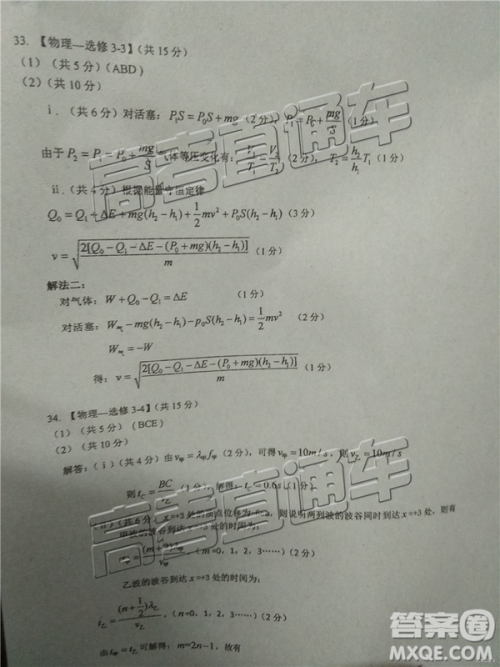 33. 【物理—选修 3-3】(共 15 分)
(1)(共 5 分)(ABD)
(2)(共 10 分)
i.(共 6 分)对活塞: P₁S = P₀S + mg (2 分), P₁ = P₀ + mg/S (1 分)
由于 P₂ = P₁ = P₀ + mg/S 气体等压变化有: V₁/T₁ = V₂/T₂ (2 分), T₂ = h₂/h₁ T₁ (1 分)
ii.(共 4 分)根据能量守恒定律
Q₀ = Q₁ + ΔE + mg(h₂ − h₁) + 1/2 mv² + P₀S(h₂ − h₁) (3 分)
v = √(2[Q₀ − Q₁ − ΔE − (P₀ + mg)(h₂ − h₁)]/m) (1 分)
解法二:
对气体: W + Q₀ − Q₁ = ΔE (1 分)
对活塞: − mg(h₂ − h₁) − p₀S(h₂ − h₁) = 1/2 mv² (2 分)
= −W
得: v = √(2[Q₀ − Q₁ − ΔE − (P₀ + mg)(h₂ − h₁)]/m) (1 分)
34. 【物理—选修 3-4】(共 15 分)
(1)(共 5 分)(BCE)
(2)(共 10 分)
解答:(i)(共 4 分)由 v甲 = λ甲 f甲 (2 分), 可得 v甲 = 10m/s, 则 v乙 = 10m/s
则 t_C = BC/v (1 分), 解得: t_C = 0.6s (1 分)
(共 6 分) x=+3 处的质点位移为 则说明两列波的波谷同时到达 x=+3 处, 则有
甲波的波谷到达 x=+3 处的时间为:
,(m=0, 1, 2, 3……)(2 分)
乙波的波谷到达 x=+3 处的时间为:
t乙 = (n + 1/2)λ乙/v乙,(n=0, 1, 2, 3……)(2 分)
由 t甲 = t乙 可解得: m=2n−1, 故有
高考直通车
高考直通车
高考直通车
答案圈
MXQE.COM